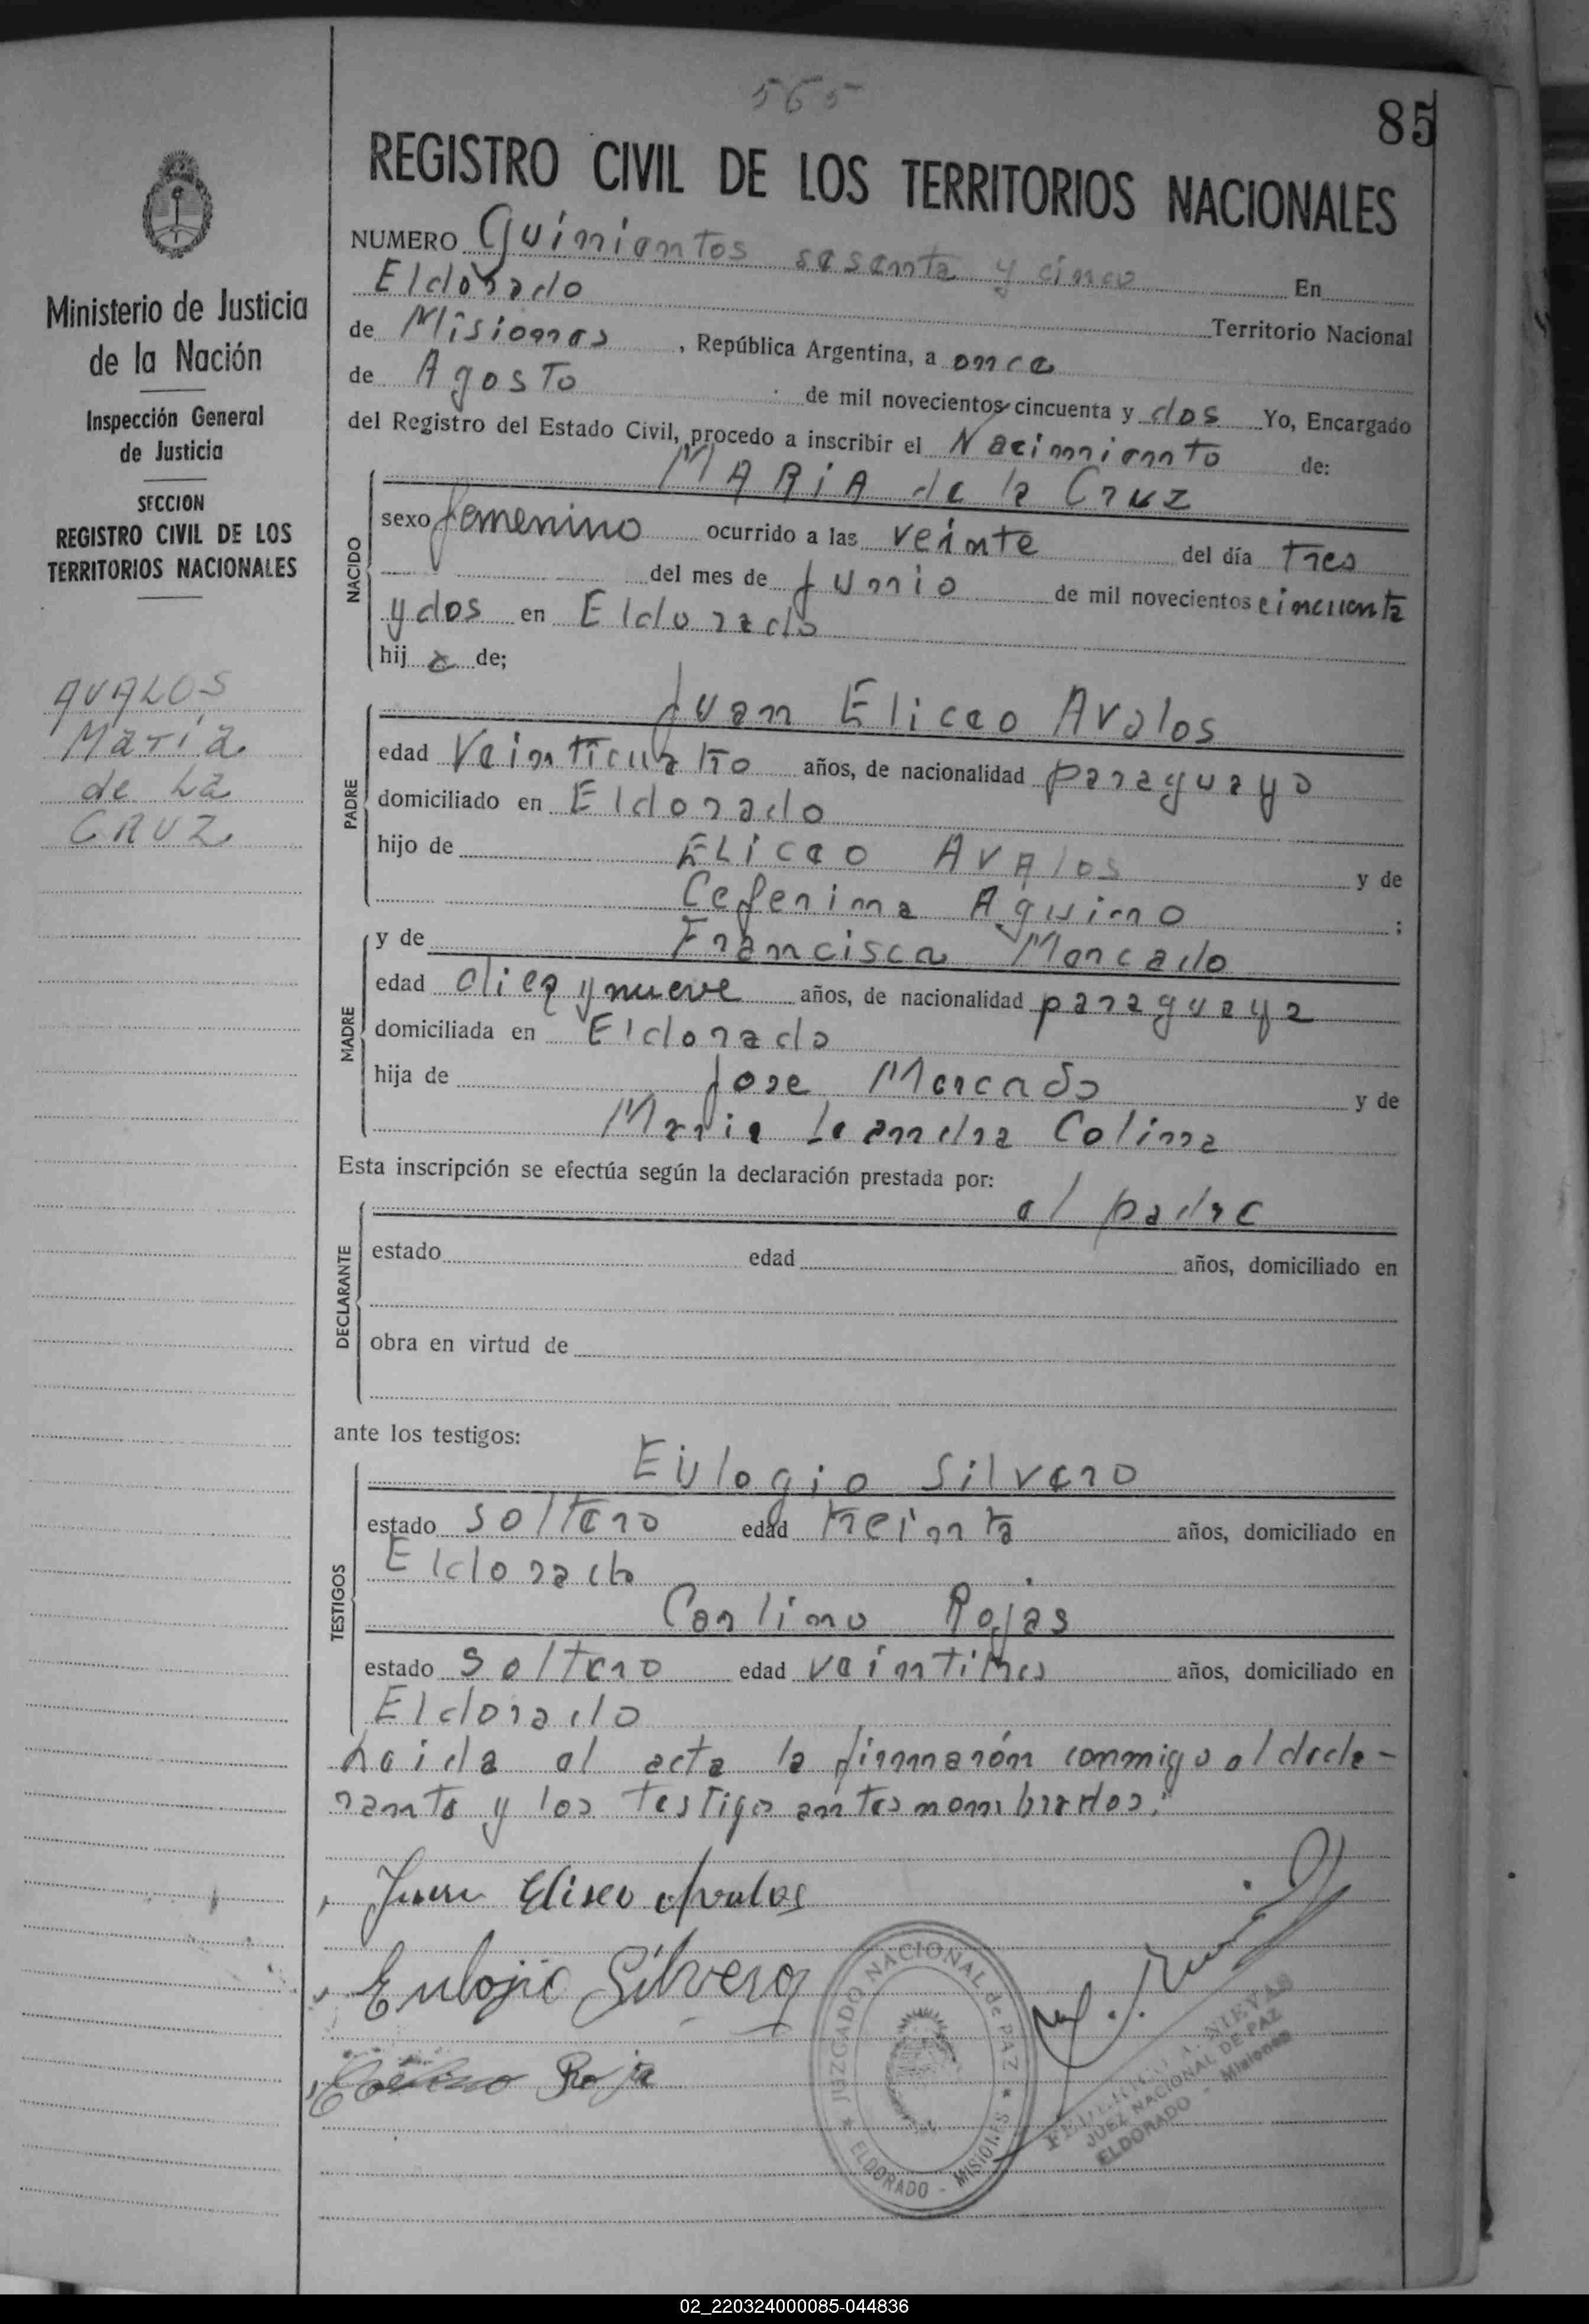 565
85
REGISTRO CIVIL DE LOS TERRITORIOS NACIONALES
Ministerio de Justicia
de la Nación
Inspección General
de Justicia
SECCION
REGISTRO CIVIL DE LOS
TERRITORIOS NACIONALES
AVALOS
Maria
de La
CRUZ
NUMERO Quinientos sesenta y cinco En
Eldorado Territorio Nacional
de Misiones, República Argentina, a once
de Agosto de mil novecientos cincuenta y dos Yo, Encargado
del Registro del Estado Civil, procedo a inscribir el Nacimiento de:
NACIDO
MARiA de la Cruz
sexo femenino ocurrido a las veinte del día tres
del mes de Junio de mil novecientos cincuenta
y dos en Eldorado
hija de;
PADRE
Juan Eliceo Avalos
edad Veinticuatro años, de nacionalidad paraguayo
domiciliado en Eldorado
hijo de Eliceo Avalos y de
Ceferina Aquino ;
MADRE
y de Francisca Mercado
edad diez y nueve años, de nacionalidad paraguaya
domiciliada en Eldorado
hija de Jose Mercado y de
Maria Leandra Colina
Esta inscripción se efectúa según la declaración prestada por:
DECLARANTE
el padre
estado edad años, domiciliado en
obra en virtud de
ante los testigos:
TESTIGOS
Eulogio Silvero
estado soltero edad treinta años, domiciliado en
Eldorado
Carlino Rojas
estado Soltero edad veintitres años, domiciliado en
Eldorado
Leida el acta la firmarón conmigo el decla-
rante y los testigos antes nombrados.
Juan Eliseo Avalos
Eulojio Silvero
Roja
JUZGADO NACIONAL de PAZ
ELDORADO - MISIONES
NIEVAS
JUEZ NACIONAL DE PAZ
ELDORADO - Misiones
02_220324000085-044836